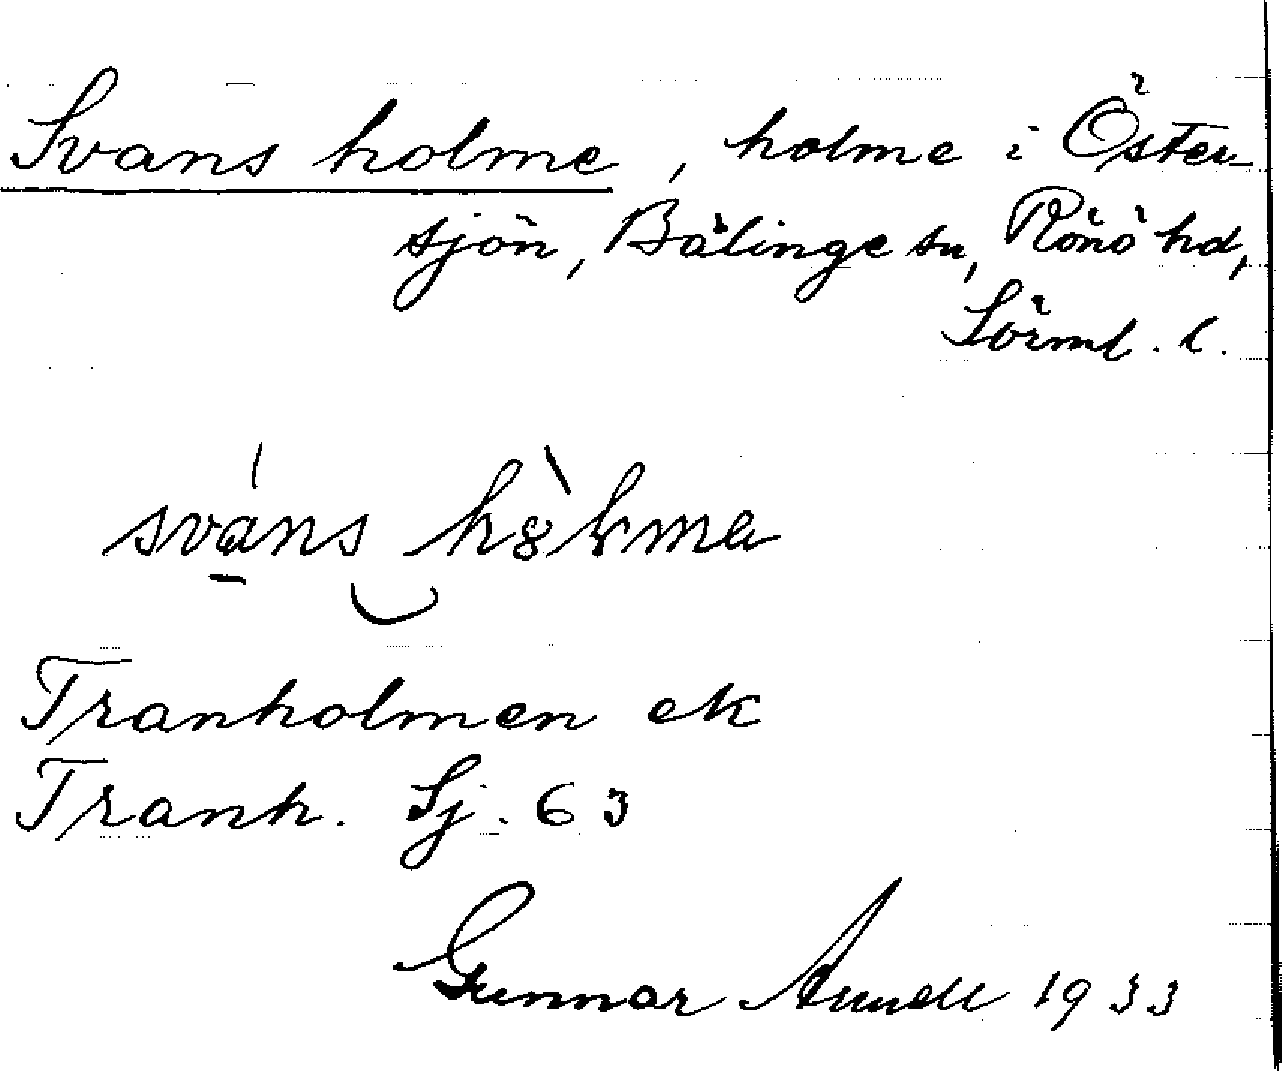 Svans holme, holme i Öster
sjön, Bälinge sn, Rönö hd,
Sörml. l.
sváns hòlma
Tranholmen ek
Tranh. Sj. 63
Gunnar 1933